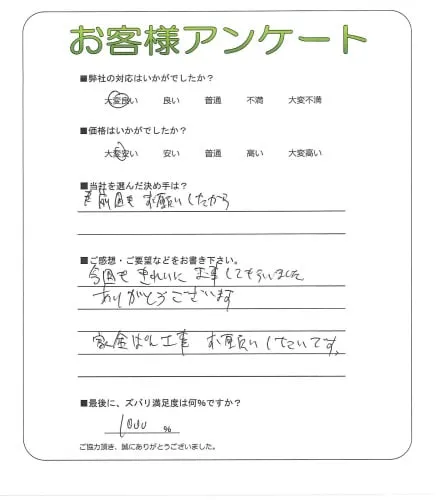 お客様アンケート
■弊社の対応はいかがでしたか？
大変良い 良い 普通 不満 大変不満
■価格はいかがでしたか？
大変安い 安い 普通 高い 大変高い
■当社を選んだ決め手は？
前回もお願いしたから
■ご感想・ご要望などをお書き下さい。
今回もきれいに工事してもらいました
ありがとうございます
お願いしたいです。
■最後に、ズバリ満足度は何％ですか？
1000 %
ご協力頂き、誠にありがとうございました。